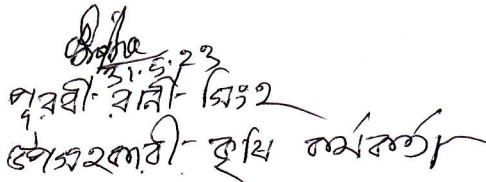 31.5.23
পূরবী রানী সিংহ
উপসহকারী কৃষি কর্মকর্তা